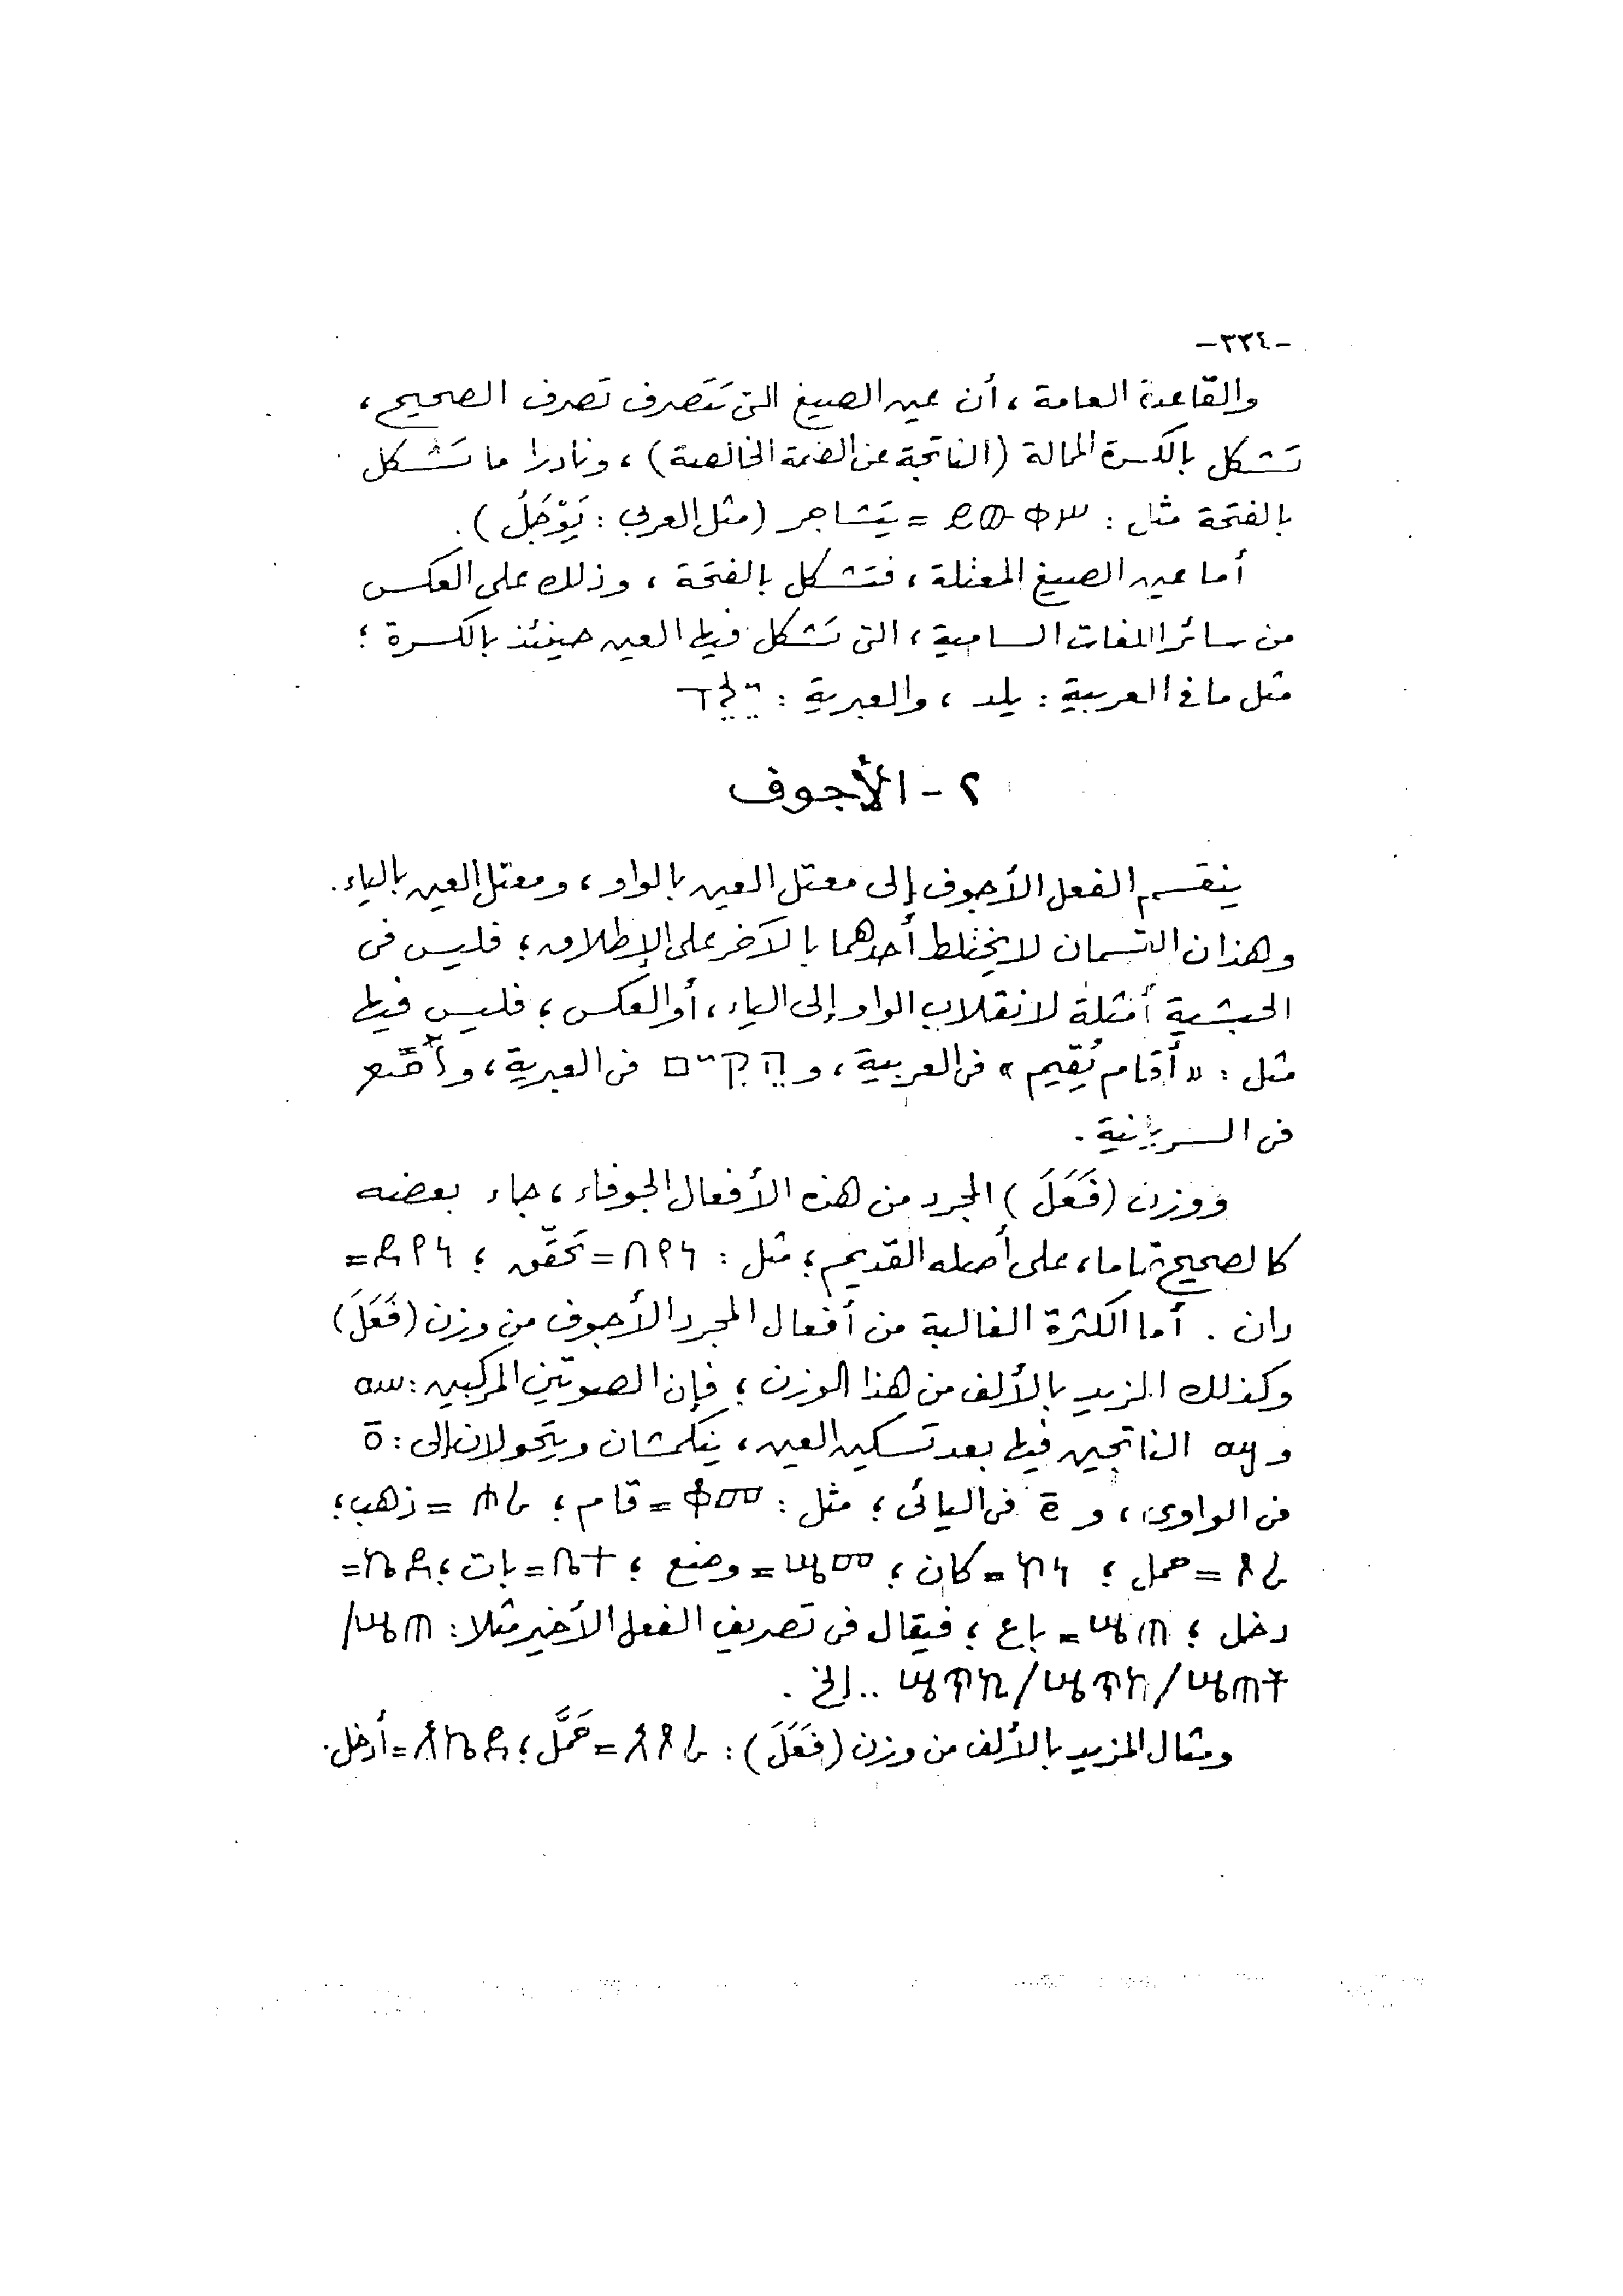 -٣٣٤-
والقاعدة العامة ، أن عين الصيغ التى تَتَصرف تَصرف الصحيح ،
تَشكل بالكسرة الممالة ( الناتجة عن الضمة الخالصة ) ، ونادرا ما تَشكل
بالفتحة مثل : = يَتَشاجر ( مثل العربى : يَوْجَلُ ) .
أما عين الصيغ المعتلة ، فتشكل بالفتحة ، وذلك على العكس
من سائر اللغات السامية ، التى تَشكل فيها العين حينئذ بالكسرة ؛
مثل ما فى العربية : يلد ، والعبرية : יֵלֵד
٢ - الأجوف
ينقسم الفعل الأجوف إلى معتل العين بالواو ، ومعتل العين بالياء .
وهذان القسمان لا يختلط أحدهما بالآخر على الإطلاق ؛ فليس فى
الحبشية أمثلة لانقلاب الواو إلى الياء ، أو العكس ؛ فليس فيها
مثل : « أقام يُقِيم » فى العربية ، و הֵקִים فى العبرية ، و
فى السريانية .
ووزن ( فَعَلَ ) المجرد من هذه الأفعال الجوفاء ، جاء بعضه
كالصحيح تماما ، على أصله القديم ؛ مثل : = تَحَقّق ؛ =
دان . أما الكثرة الغالبة من أفعال المجرد الأجوف من وزن ( فَعَلَ )
وكذلك المزيد بالألف من هذا الوزن ؛ فإن الصوتين المركبين : aw
و ay الناتجين فيها بعد تسكين العين ، ينكمشان ويتحولان إلى : ō
فى الواوى ، و ē فى اليائى ؛ مثل : ቆመ = قام ؛ ሖረ = ذهب ؛
= حمل ؛ ኮነ = كان ؛ ሤመ = وضع ؛ ቤተ = بات ؛ =
دخل ؛ ሤጠ = باع ؛ فيقال فى تصريف الفعل الأخير مثلا : ሤጠ /
ሤጠት / ሤጥከ / .. إلخ .
ومثال المزيد بالألف من وزن ( فَعَلَ ) : = حَمَّل ؛ = أدخل .